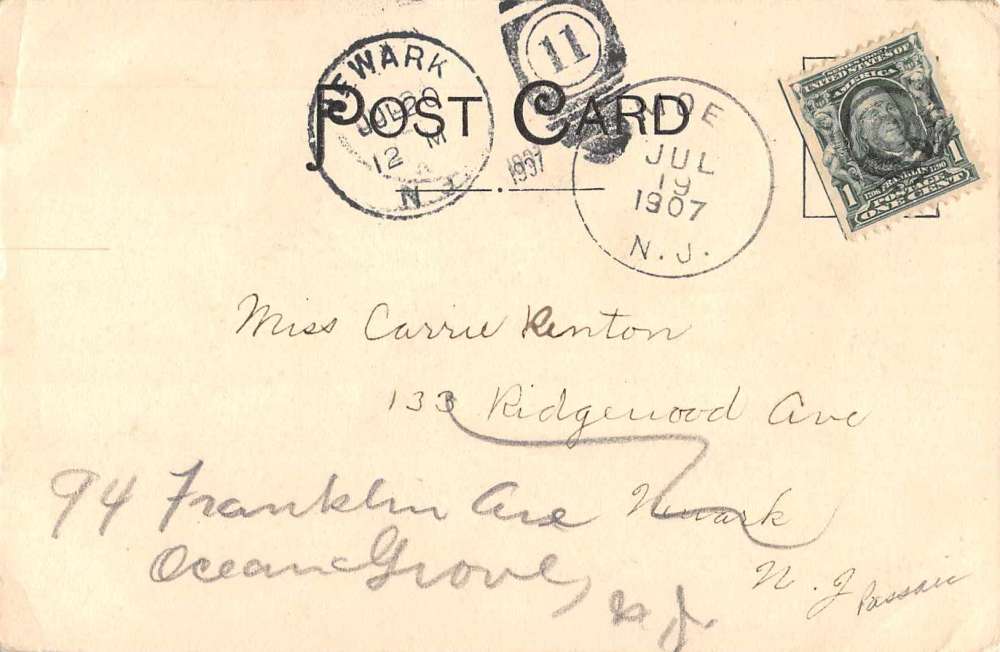 POST CARD
NEWARK
JUL 20
12 M
N.J.
1907
11
MOE
JUL
19
1907
N.J.
UNITED STATES OF
AMERICA
1706 FRANKLIN 1790
POSTAGE
1 ONE CENT 1
Miss Carrie Renton
133 Ridgewood Ave
Newark
N. J.
94 Franklin Ave
Ocean Grove,
N. J.